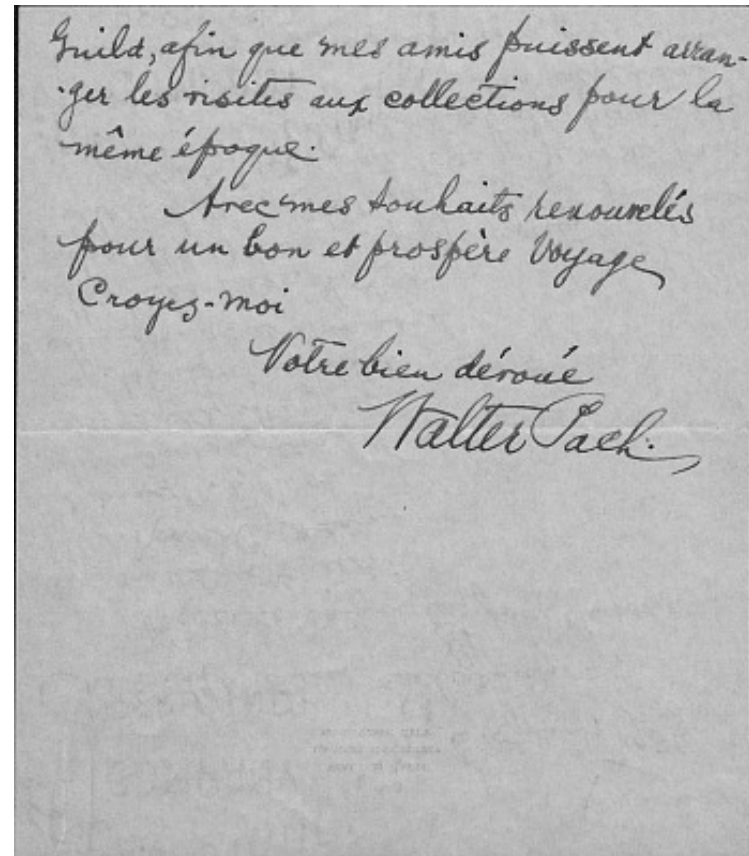 Guild, afin que mes amis puissent arran-
-ger les visites aux collections pour la
même époque.
Avec mes souhaits renouvelés
pour un bon et prospère voyage,
Croyez-moi
Votre bien dévoué
Walter Pach.